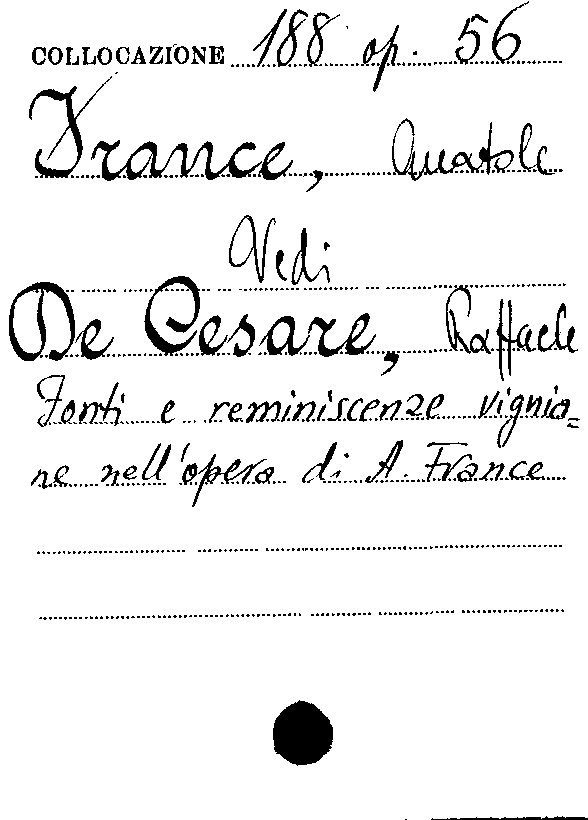 COLLOCAZIONE 188 op. 56
France, Anatole
Vedi
De Cesare, Raffaele
Fonti e reminiscenze vignia=
ne nell'opera di A. France